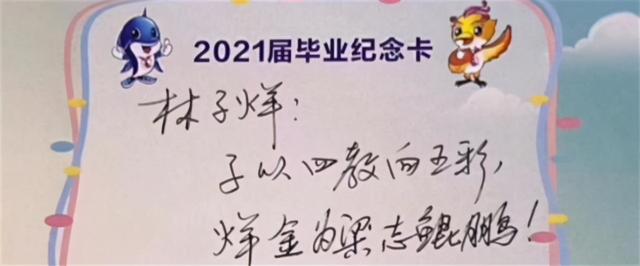 2021届毕业纪念卡
林子烊：
子以四教向五彩，
烊金为梁志鲲鹏！